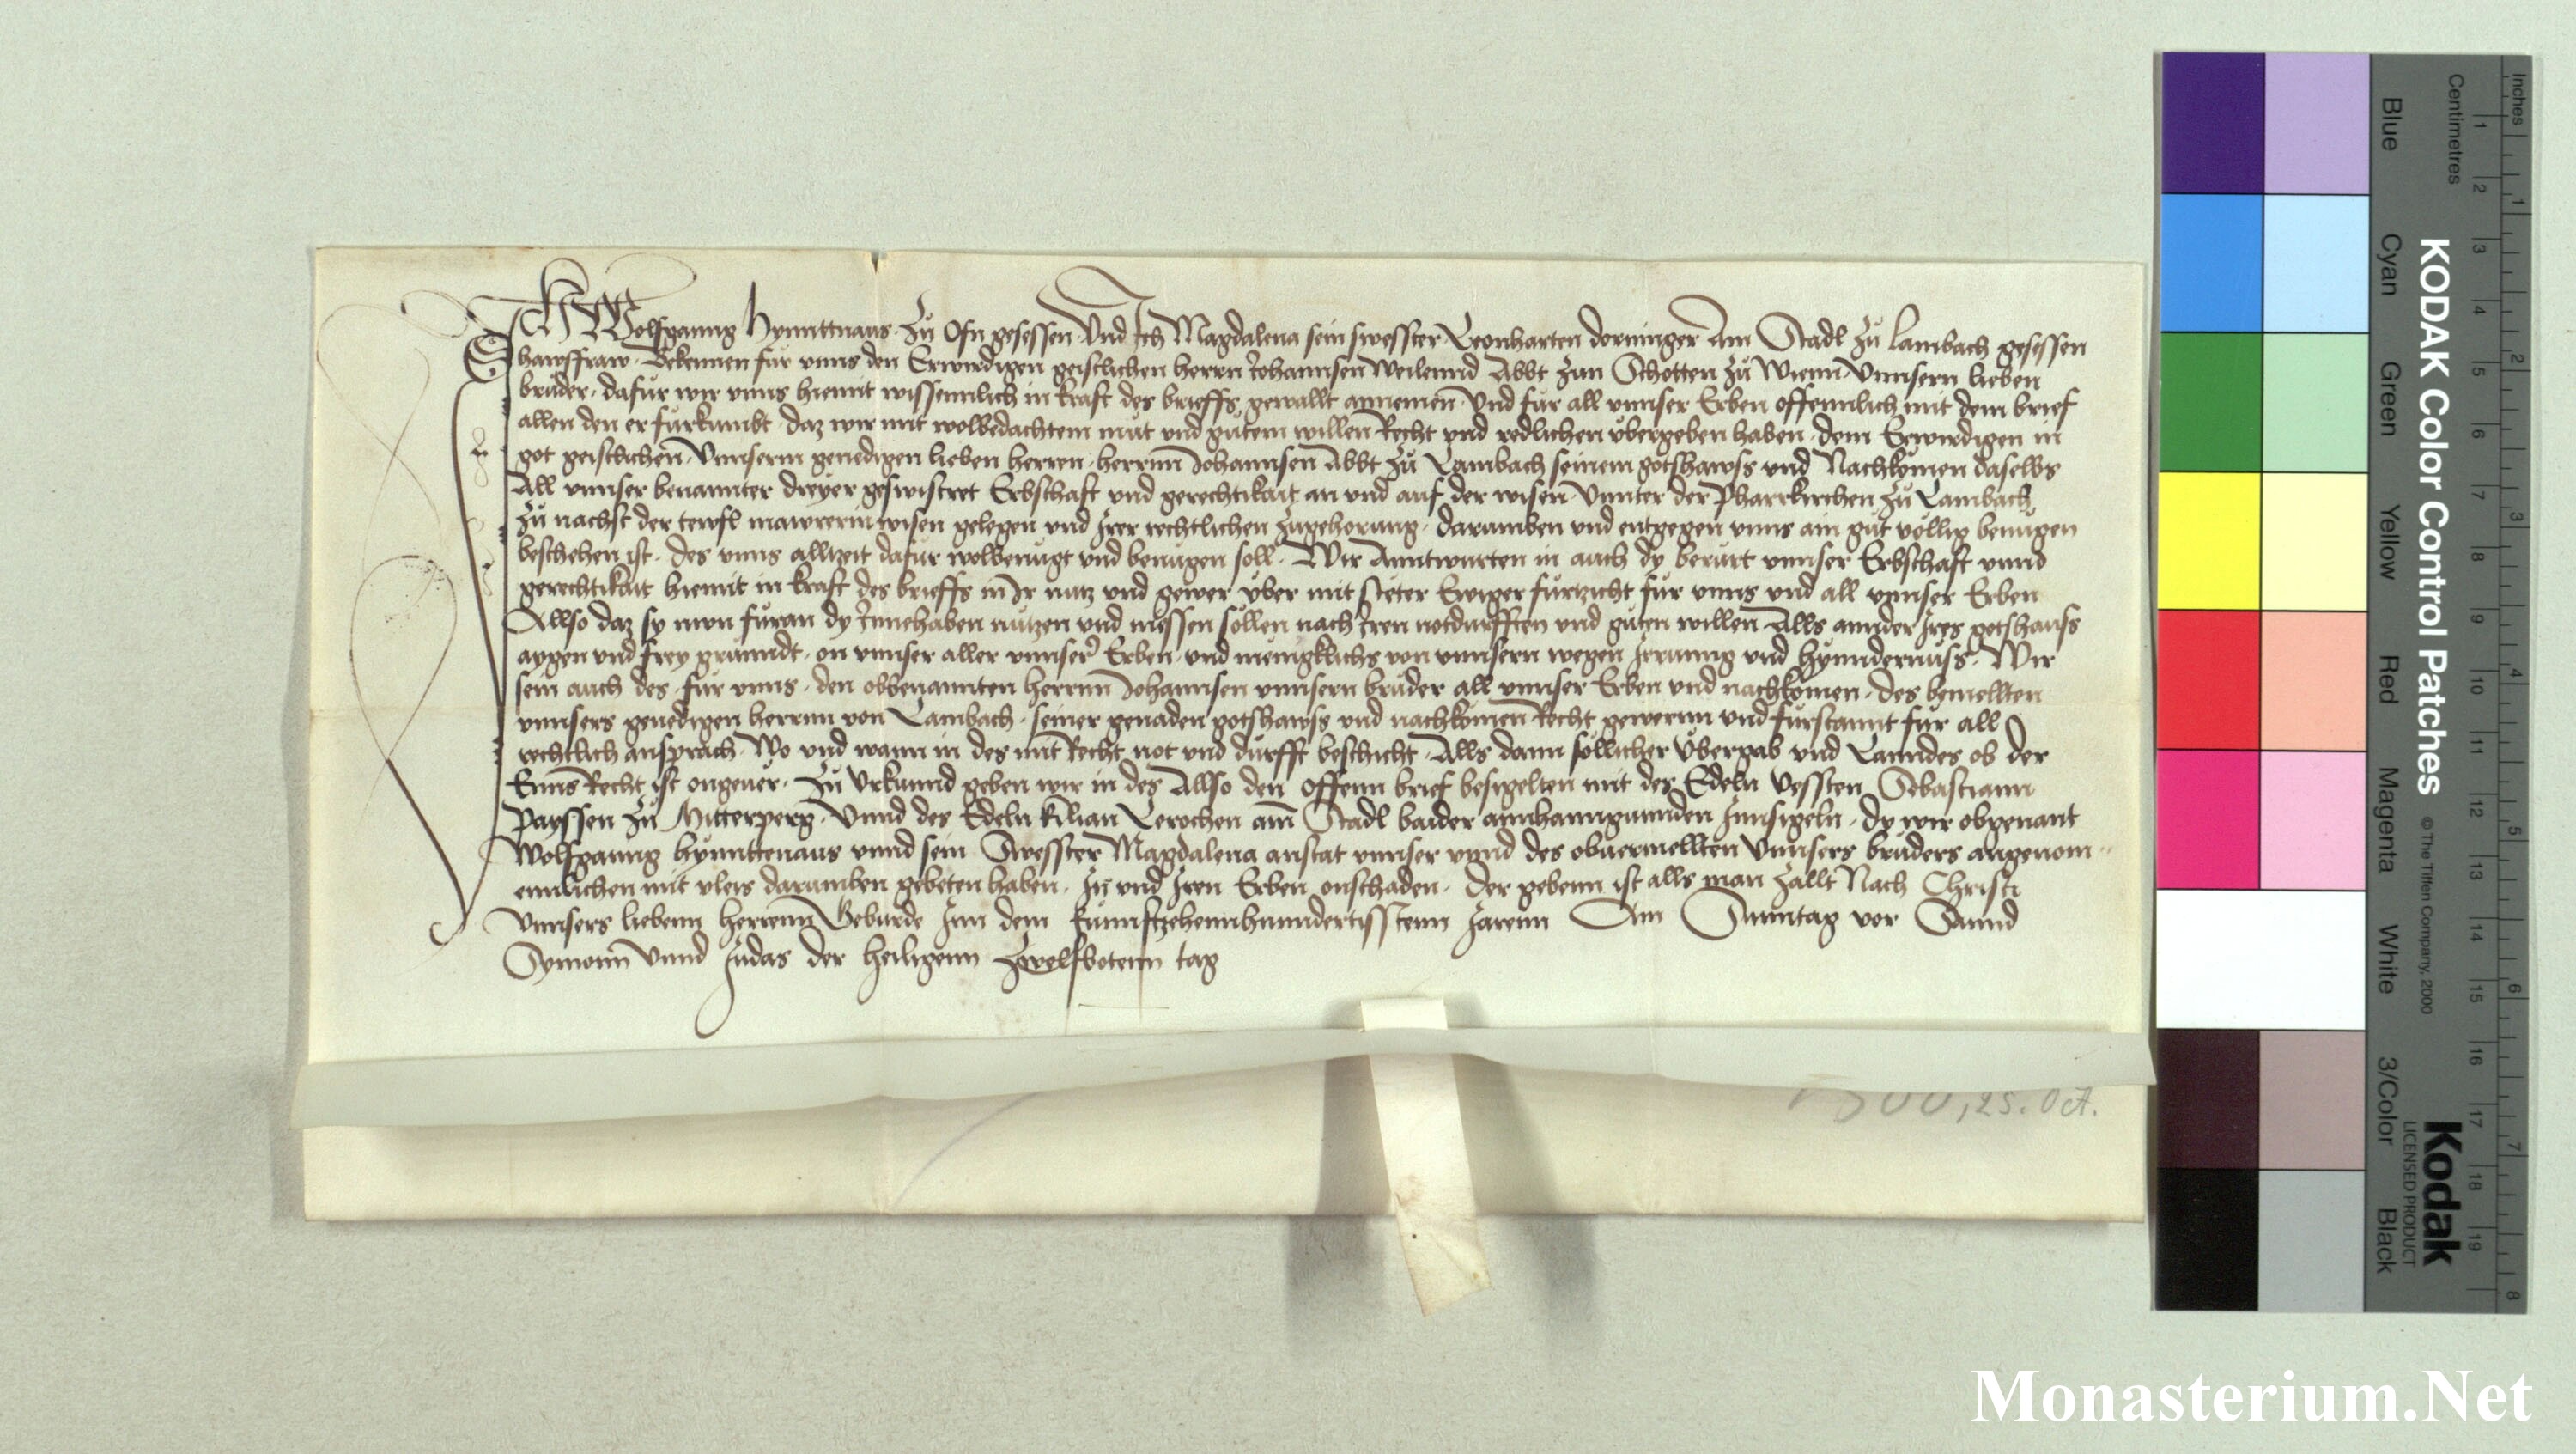 Ich Wolfganng hynnttnaus zů Ofn gesessen Vnd Ich Magdalena sein swesster Leonharten dorninger Am Stadl zů Lambach gesessen
hawsffraw Bekennen für vnns den Erwirdigen geistlichen herrn Johannsen Weilennd Abbt zun Schotten zů Wienn Vnnsern lieben
brůder dafür wir vnns hiemit wissenntlich in kraft des brieffs gewallt annemen Vnd für all vnnser Erben offennlich mit dem brief
allen den er fürkumbt daz wir mit wolbedachtem můt vnd gůtem willen Recht vnd redlichen vbergeben haben dem Erwirdigen in
got geistlichen Vnnserm genedigen lieben herren herrnn Johannsen Abbt zů Lambach seinem gotshawss vnd Nachkomen daselbs
All vnnser benannter dreyer geswistret Erbschaft vnd gerechtikait an vnd auf der wisen Vnnter der Pharrkirchen zů Lambach
zů nachst der tewfl mawrerin wisen gelegen vnd Irer rechtlichen zůgehorung darumben vnd entgegen vnns ain gůt vollig benůgen
beschehen ist des vnns alltzeit dafür wolbenůgt vnd benůgen soll Wir Anntwurten in auch dy berůrt vnnser Erbschaft vnnd
gerechtikait hiemit in kraft des brieffs in Ir nutz vnd gewer vber mit steter Ewiger fürtzicht für vnns vnd all vnnser Erben
Allso daz sy nun füran dy Innehaben nützen vnd niessen sollen nach Iren notdurfften vnd gůten willen Alls annder Ires gotshauss
aygen vnd frey grünndt on vnnser aller vnnser Erben vnd menigklichs von vnnsern wegen Irrunng vnd hynndernüss Wir
sein auch des für vnns den obbenannten herrnn Johannsen vnnsern brůder all vnnser Erben vnd nachkomen des bemellten
vnnsers genedigen herrnn von Lambach seiner genaden gotshawss vnd nachkomen Recht gewernn vnd fürstannt für all
rechtlich ansprach Wo vnd wann in des mit Recht not vnd dürfft beschicht Alls dann söllicher Vbergab vnd Lanndes ob der
Enns Recht ist ongeuer Zů Vrkunnd geben wir in des Allso den offenn brief besigelten mit des Edeln Vessten Sebastiann
Payssen zů Mitterperg Vnnd des Edeln kilian Lerochen am Stadl baider annhanngunnden Innsigeln dy wir obgenant
Wolfganng hynnttenaus vnnd sein Swesster Magdalena anstat vnnser vnnd des obuermellten Vnnsers brůders angenom
ennlichen mit vleis darumben gebeten haben In vnd Iren Erben onschaden Der gebenn ist alls man zallt Nach Christi
Vnnsers liebenn herrenn Gebůrde Inn dem fünnftzehennhunndertisstenn Jarenn Am Sunntag vor Sannd
Symonn Vnnd Judas der heiligenn zwelfbotenn tag
1500, 25. Oct.
KODAK Color Control Patches
© The Tiffen Company, 2000
Kodak
LICENSED PRODUCT
Inches
Centimetres
Blue Cyan Green Yellow Red Magenta White 3/Color Black
1 2 3 4 5 6 7 8 9 10 11 12 13 14 15 16 17 18 19
1 2 3 4 5 6 7 8
Monasterium.Net